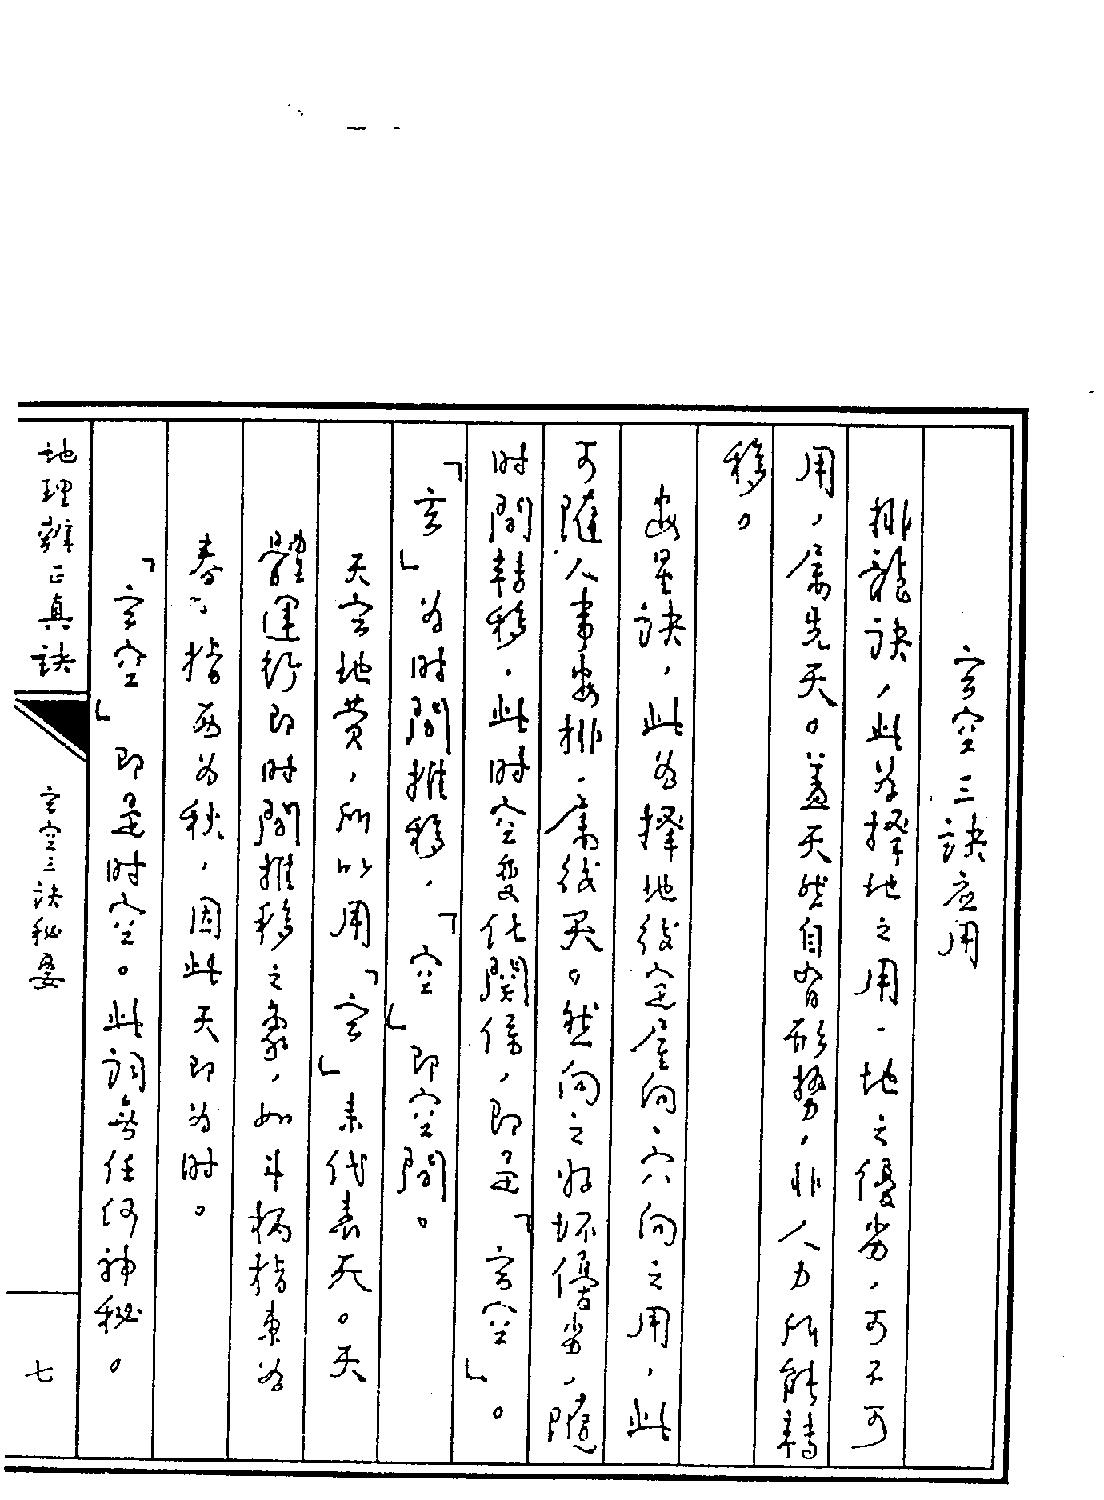 玄空三訣应用
排龍訣，此為擇地之用，地之優劣，可不可
用，属先天。蓋天然自有形勢，非人力所能轉
移。
安星訣，此為擇地後定屋向、穴向之用，此
可隨人事安排，属後天。然向之好坏優劣，隨
时間轉移，此时空变化関係，即是「玄空」。
「玄」為时間推移，「空」即空間。
天玄地黄，所以用「玄」来代表天。天
體運行即时間推移之象，如斗柄指東為
春，指西為秋，因此天即為时。
「玄空」即是时空。此詞無任何神秘。
地理辨正真訣
玄空三訣秘要
七